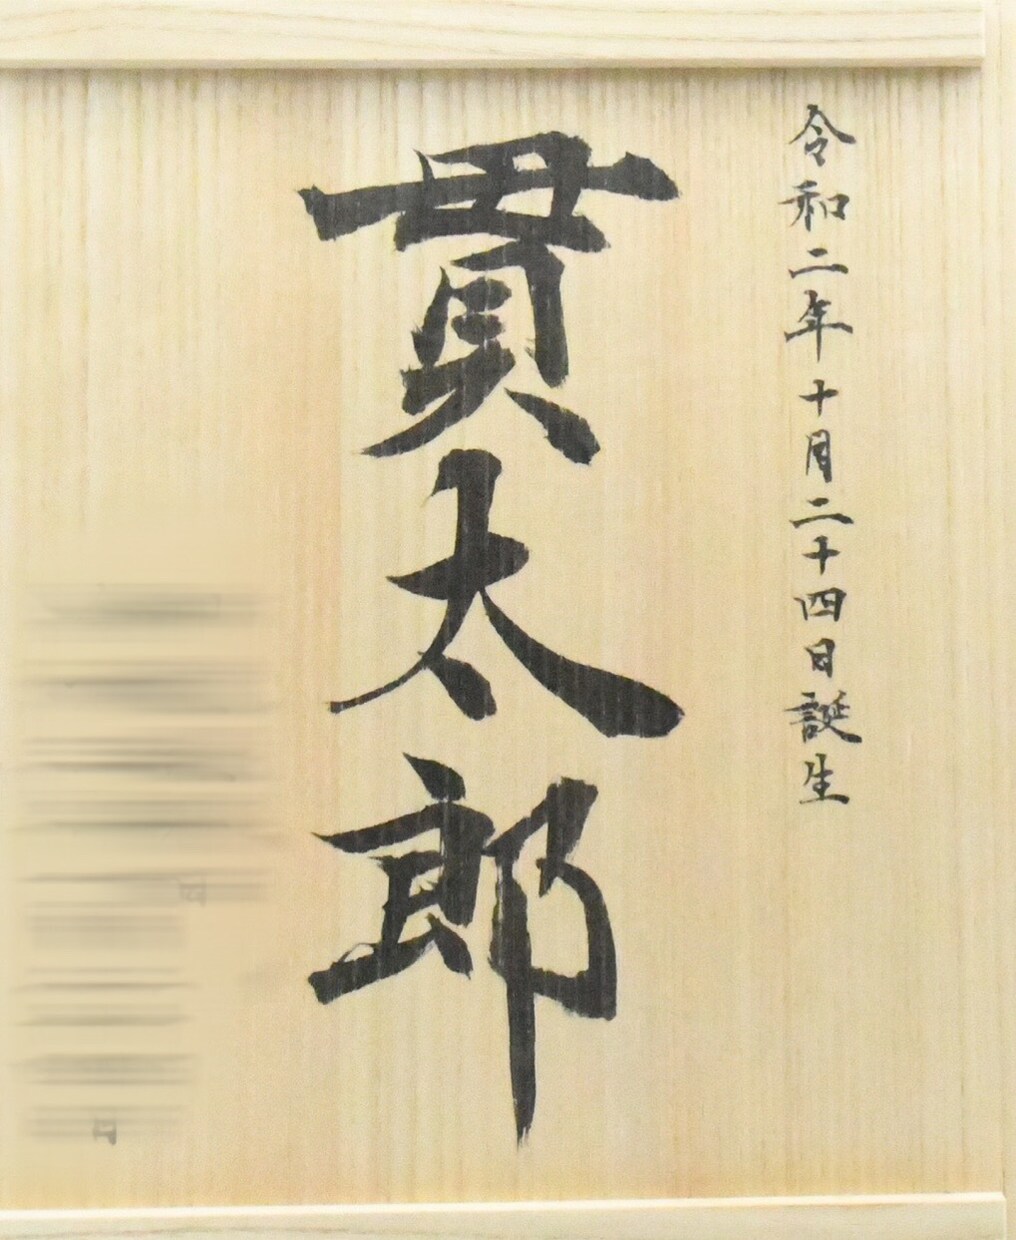 令和二年十月二十四日誕生
貫太郎